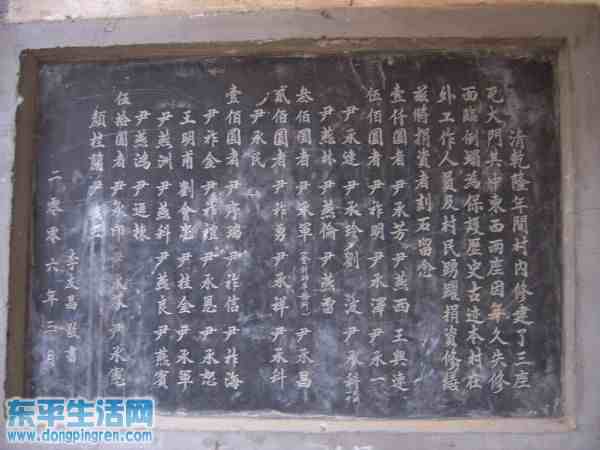 清乾隆年間村內修建了三座
死大門其中東西两座因年久失修
面臨倒塌為保護歷史古迹本村在
外工作人員及村民踴躍捐資修繕
兹將捐資者刻石留念
壹仟圓者 尹承芳 尹燕西 王興連
伍佰圓者 尹祚明 尹承澤 尹承一
尹承建 尹承玲 劉 尹承科
尹燕林 尹燕倫 尹燕雷
叁佰圓者 尹承軍 尹承昌
贰佰圓者 尹祚勇 尹承祥 尹承科
尹承民
壹佰圓者 尹序瑞 尹祚信 尹祚海
尹祚金 尹祚禮 尹承恩 尹承恕
王明甫 劉會忠 尹桂全 尹承軍
尹燕洲 尹燕科 尹燕良 尹燕賓
尹燕鴻 尹逎棟
伍拾圓者 尹承印 尹承憲
顏桂蘭 尹
李友昌 書
二零零六年三月
东平生活网
www.dongpingren.com